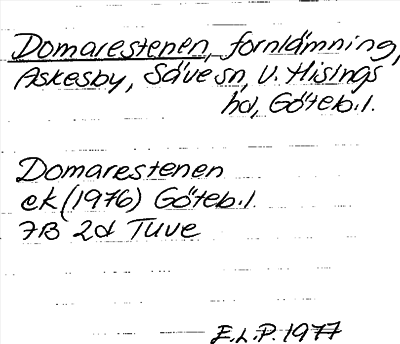 Domarestenen, fornlämning,
Askesby, Säve sn, V. Hisings
hd, Göteb.l.
Domarestenen
ek (1976) Göteb.l.
7B 2d Tuve
E.L.P. 1977